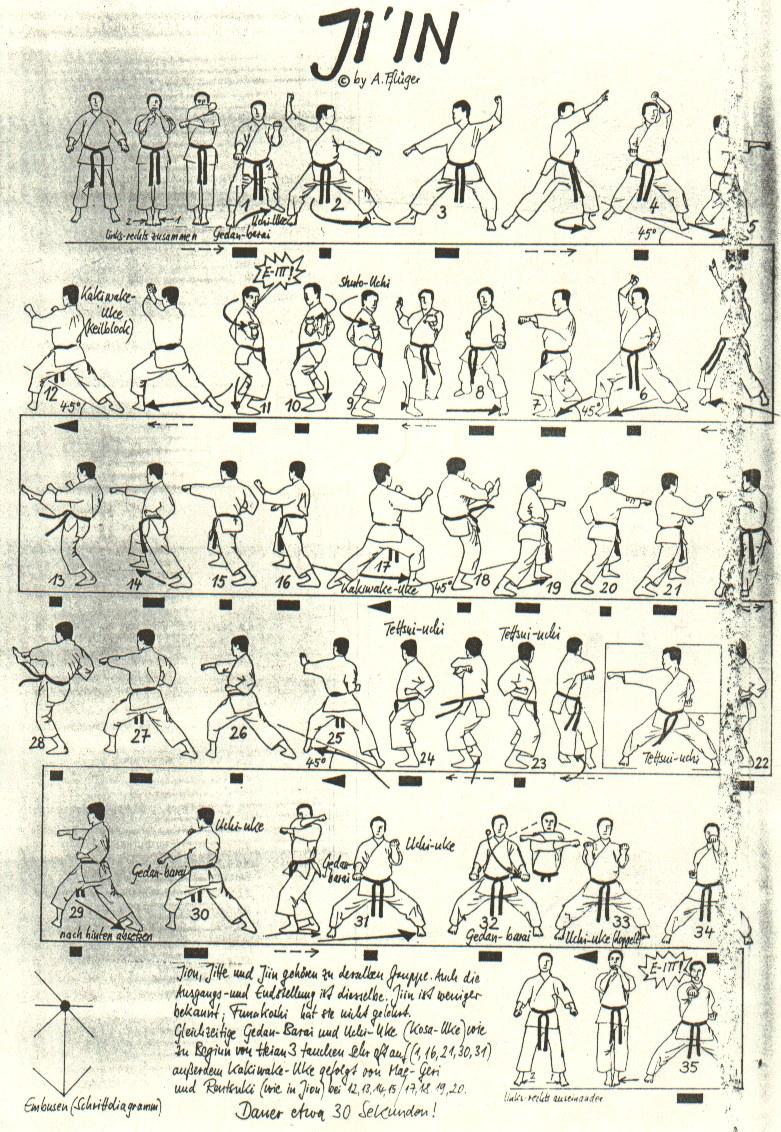 JI'IN
© by A. Pflüger
links-rechts zusammen
2 1
Gedan-barai
Uchi-Uke
1 2 3 4 5
45°
Kakiwake-
Uke
(Keilblock)
E-III!
Shuto-Uchi
12 45° 11 10 9 8 7 45° 6
13 14 15 16 17 45° 18 19 20 21
Kakiwake-Uke
Tettsui-uchi
Tettsui-uchi
28 27 26 25 24 23 22
45°
S
Tettsui-uchi
Uchi-uke
Gedan-barai
Gedan-
barai
Uchi-Uke
29 30 31 32 33 34
nach hinten absetzen
Gedan-barai
Uchi-Uke (doppelt)
Jion, Jitte und Jiin gehören zu derselben Gruppe. Auch die
Ausgangs- und Endstellung ist dieselbe. Jiin ist weniger
bekannt; Funakoshi hat sie nicht gelehrt.
Gleichzeitige Gedan-Barai und Uchi-Uke (Kosa-Uke) wie
zu Beginn von Heian 3 tauchen sehr oft auf (1,16,21,30,31)
außerdem Kakiwake-Uke gefolgt von Mae-Geri
und Rentsuki (wie in Jion) bei 12,13,14,15 / 17,18,19,20.
Dauer etwa 30 Sekunden!
Embusen (-Schrittdiagramm)
E-III!
35
2
links-rechts auseinander